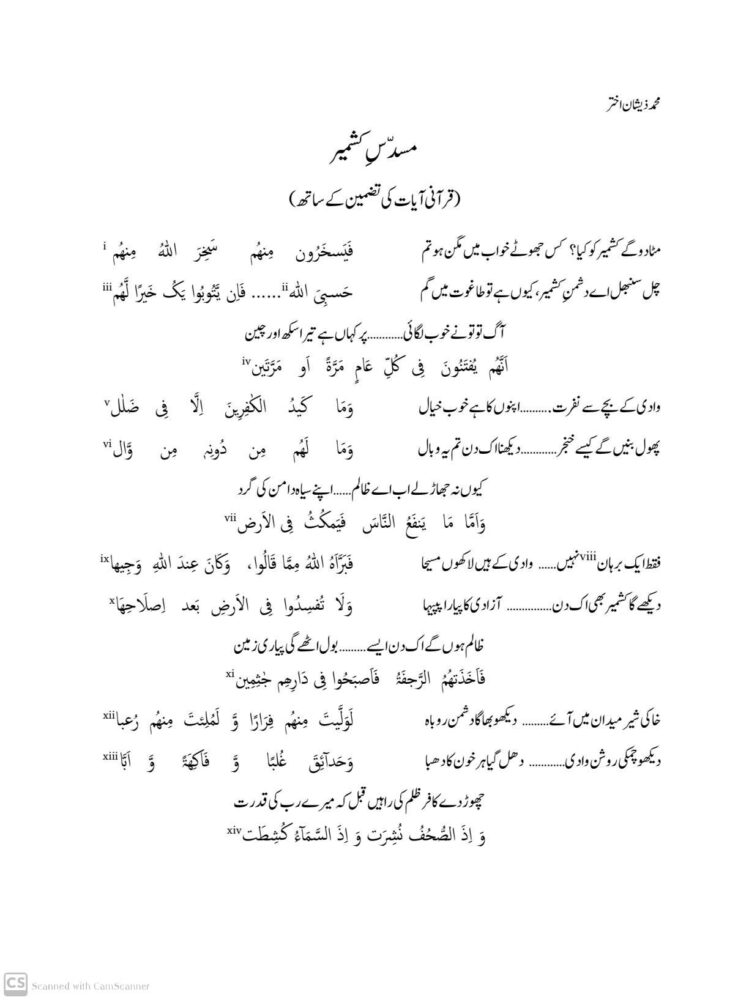 محمد ذیشان اختر
مسدّسِ کشمیر
(قرآنی آیات کی تضمین کے ساتھ)
مٹا دو گے کشمیر کو کیا؟ کس جھوٹے خواب میں مگن ہو تم فَيَسخَرُون مِنهُم سَخِرَ اللهُ مِنهُم i
چل سنبھل اے دشمنِ کشمیر، کیوں ہے تو طاغوت میں گم حَسبِیَ اللہ ii...... فَاِن يَّتُوبُوا يَکُ خَيرًا لَّهُم iii
آگ تو تو نے خوب لگائی............ پر کہاں ہے تیرا سکھ اور چین
اَنَّهُم يُفتَنُونَ فِی کُلِّ عَامٍ مَرَّةً اَو مَرَّتَين iv
وادی کے بچے سے نفرت.......... اپنوں کا ہے خوب خیال وَمَا کَيدُ الکٰفِرِينَ اِلَّا فِی ضَلٰل v
پھول بنیں گے کیسے خنجر............ دیکھنا اک دن تم یہ وبال وَمَا لَهُم مِن دُونِہٖ مِن وَّال vi
کیوں نہ جھاڑ لے اب اے ظالم...... اپنے سیاہ دامن کی گرد
وَاَمَّا مَا يَنفَعُ النَّاسَ فَيَمکُثُ فِی الاَرض vii
فقط ایک برہان viii نہیں...... وادی کے ہیں لاکھوں مسیحا فَبَرَّاَهُ اللهُ مِمَّا قَالُوا، وَکَانَ عِندَ اللهِ وَجِيها ix
دیکھے گا کشمیر بھی اک دن............... آزادی کا پیارا پپیہا وَلَا تُفسِدُوا فِی الاَرضِ بَعد اِصلَاحِهَا x
ظالم ہوں گے اک دن ایسے......... بول اٹھے گی پیاری زمین
فَاَخَذَتهُمُ الرَّجفَةُ فَاَصبَحُوا فِی دَارِهِم جٰثِمِين xi
خاکی شیر میدان میں آئے......... دیکھو بھاگا دشمن روباہ لَوَلَّيتَ مِنهُم فِرَارًا وَّ لَمُلِئتَ مِنهُم رُعبا xii
دیکھو چمکی روشن وادی............ دھل گیا ہر خون کا دھبا وَحَدآئِقَ غُلبًا وَّ فَاکِهَةً وَّ اَبًّا xiii
چھوڑ دے کافر ظلم کی راہیں قبل کہ میرے رب کی قدرت
وَ اِذَ الصُّحُفُ نُشِرَت وَ اِذَ السَّمَآءُ کُشِطَت xiv
CS Scanned with CamScanner